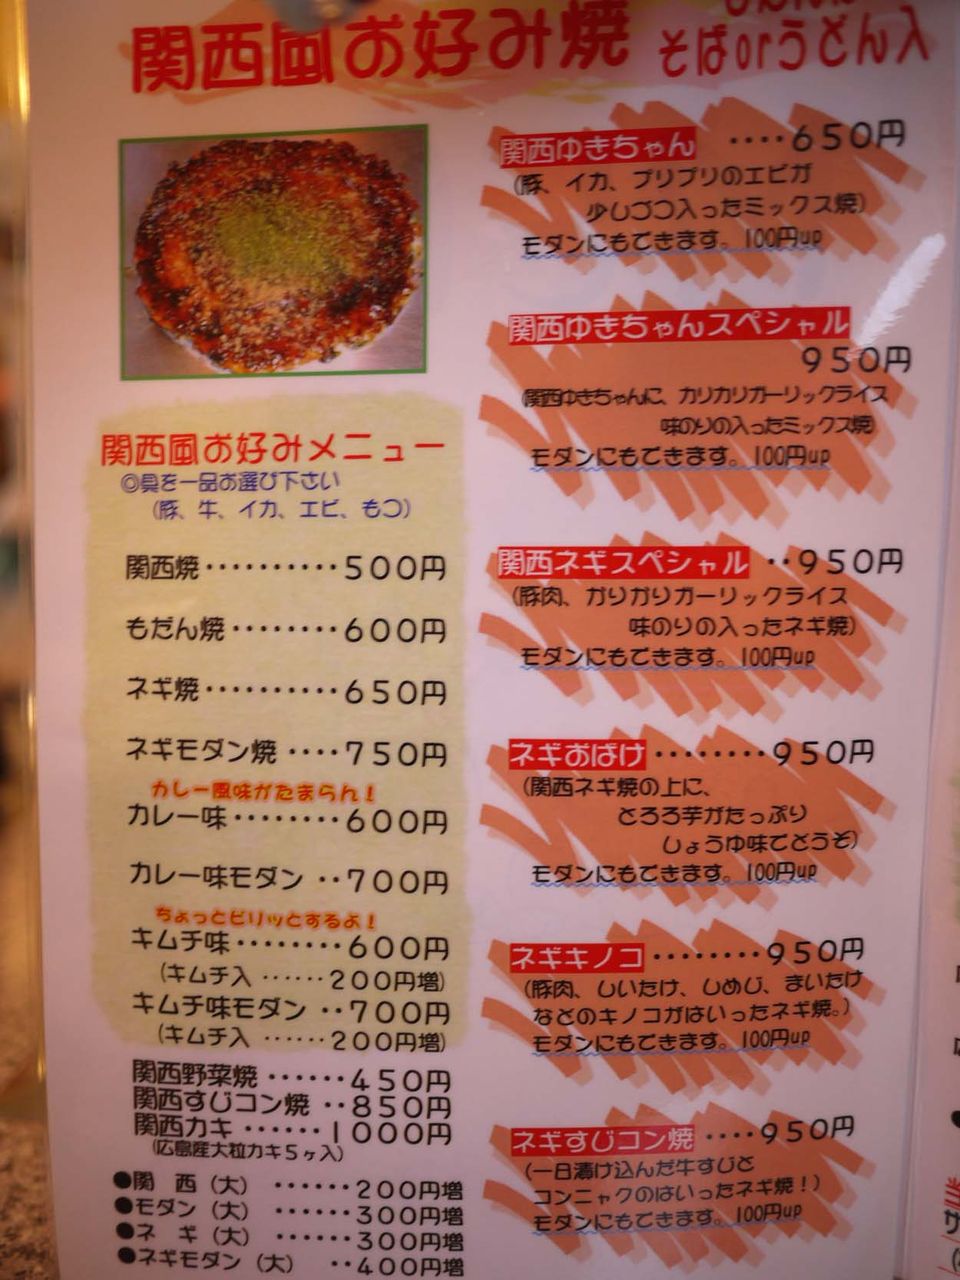 関西風お好み焼
そばorうどん入
関西ゆきちゃん ････650円
(豚、イカ、プリプリのエビが
少しづつ入ったミックス焼)
モダンにもできます。100円up
関西ゆきちゃんスペシャル
950円
(関西ゆきちゃんに、カリカリガーリックライス
味のりの入ったミックス焼)
モダンにもできます。100円up
関西ネギスペシャル ･･950円
(豚肉、かりかりガーリックライス
味のりの入ったネギ焼)
モダンにもできます。100円up
ネギおばけ ････････950円
(関西ネギ焼の上に、
とろろ芋がたっぷり
しょうゆ味でどうぞ)
モダンにもできます。100円up
ネギキノコ ････････950円
(豚肉、しいたけ、しめじ、まいたけ
などのキノコがはいったネギ焼。)
モダンにもできます。100円up
ネギすじコン焼 ････950円
(一日漬け込んだ牛すじと
コンニャクのはいったネギ焼！)
モダンにもできます。100円up
関西風お好みメニュー
◎具を一品お選び下さい
(豚、牛、イカ、エビ、もつ)
関西焼･･････････500円
もだん焼････････600円
ネギ焼･･････････650円
ネギモダン焼 ････750円
カレー風味がたまらん！
カレー味････････600円
カレー味モダン ･･700円
ちょっとピリッとするよ！
キムチ味････････600円
(キムチ入 ･･････200円増)
キムチ味モダン ･･700円
(キムチ入 ･･････200円増)
関西野菜焼 ･･････450円
関西すじコン焼 ･･850円
関西カキ ･･････1000円
(広島産大粒カキ5ヶ入)
●関　西（大） ･･････200円増
●モダン（大） ･･････300円増
●ネ　ギ（大） ･･････300円増
●ネギモダン（大） ･･400円増